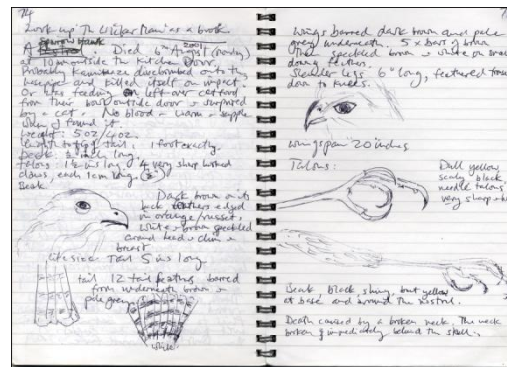 74
Work up 'The Wicker Man' as a book
Sparrow Hawk
A Died 6th August 2001 (monday)
at 10 am outside the kitchen Door.
Probably Kamikaze divebombed onto the
and killed itself on impact.
Or was feeding on left over cat food
from their bowl outside door & surprised
by a cat. No blood - warm & supple
when I found it.
weight: 5 oz/4 ozs.
length to tip of tail: 1 foot exactly.
beak: ½ inch long.
talons: 1½ ins long & 4 very sharp hooked
claws, each 1cm long.
Beak
Dark brown on its
back feathers edged
in orange/russet.
White & brown speckled
around head & chin &
breast
Life size Tail 5 ins long
tail 12 tail feathers, barred
from underneath brown &
pale grey
white
Wings barred dark brown and pale
grey underneath. 5 x bars of brown
then speckled brown & white on small
downy feathers.
Slender legs 6" long, feathered from
down to knees.
wingspan 20 inches
Talons:
Dull yellow,
scaly black
needle talons
very sharp
Beak black shiny, but yellow
at base and around the nostril.
Death caused by a broken neck. The neck
broken immediately behind the skull.